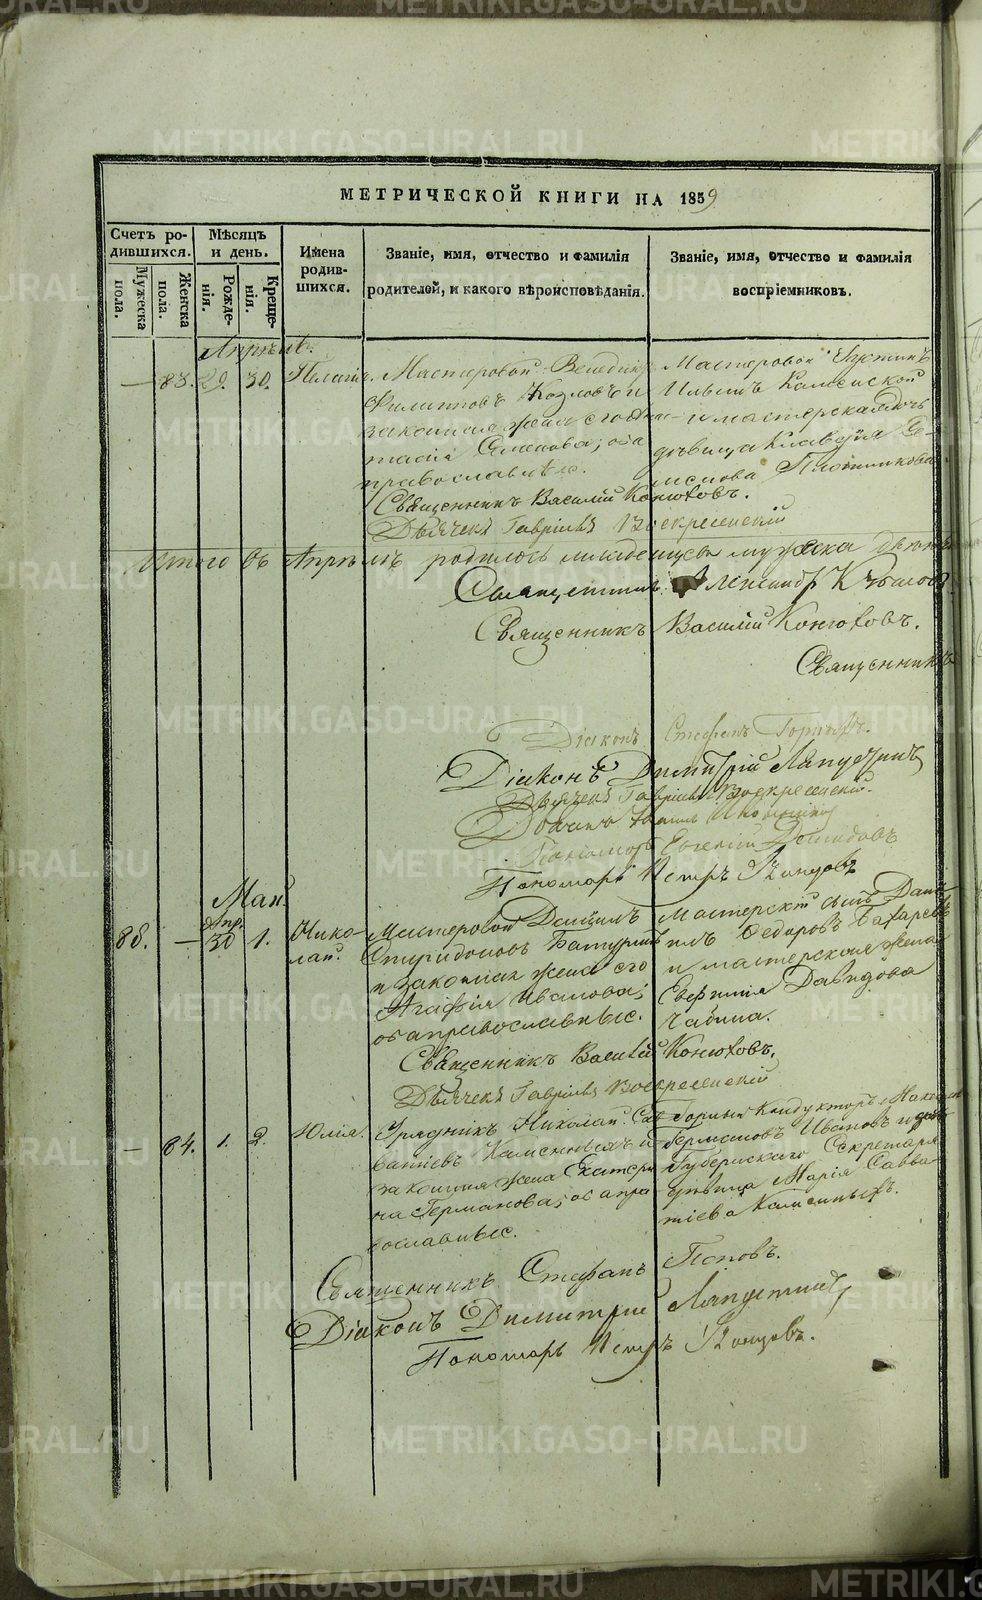 МЕТРИЧЕСКОЙ КНИГИ НА 1859
Счетъ ро-
дившихся.
Мужеска
пола.
Женска
пола.
Мѣсяцъ
и день.
Рожде-
нія.
Креще-
нія.
Имена
родив-
шихся.
Званіе, имя, отчество и фамилія
родителей, и какого вѣроисповѣданія.
Званіе, имя, отчество и фамилія
воспріемниковъ.
Апрѣль.
— 83. 29. 30.
Мастеровой
Филипповъ Козловъ и
законная жена его
Семенова; оба
православные.
Мастеровой
Ильинъ Каменской
и мастерская дочь
дѣвица Клавдія Се-
менова Плотникова.
Священникъ Василій Конюховъ.
Дьячекъ Гавріилъ Воскресенскій
Итого въ Апрѣлѣ родилось младенцевъ мужеска
Священникъ Александр
Священникъ Василій Конюховъ.
Священникъ
Діаконъ Стефанъ
Діаконъ Димитрій Лапустинъ
Дьячекъ Гавріилъ Воскресенскій.
Пономарь Евгеній Демидовъ
Пономарь Петръ
Май.
88. — Апр. 30 1.
Нико-
лай.
Мастеровой Даніилъ
Спиридоновъ Батуринъ
и законная жена его
Агафія Иванова;
оба православные.
Мастерскій сынъ
Ѳедоровъ
и мастерская жена
Евфимія Давидова
Священникъ Василій Конюховъ.
Дьячекъ Гавріилъ Воскресенскій
— 84. 1. 2.
Юлія.
Урядникъ Николай Сав-
ватіевъ Каменныхъ и
законная жена Екатери-
на Германова; оба пра-
вославные.
Горный Кондукторъ
Германовъ Ивановъ и дочь
Губернскаго Секретаря
дѣвица Марія Савва-
тіева Каменныхъ.
Священникъ Стефанъ Поповъ.
Діаконъ Димитрій Лапустинъ
Пономарь Петръ
METRIKI.GASO-URAL.RU